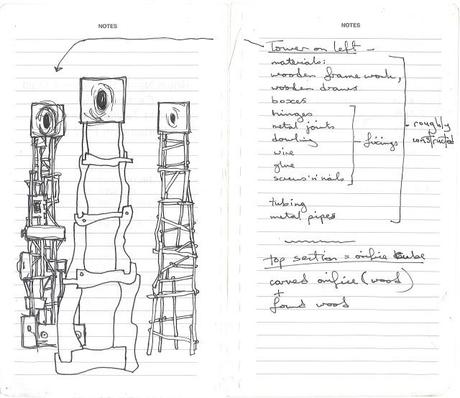 NOTES
NOTES
Tower on left -
materials:
wooden frame work,
wooden draws
boxes
hinges
metal joints
dowling
wire
glue
screws 'n' nails
- ficings
tubing
metal pipes
- roughly
constructed
top section = orifice cube
carved orifice (wood)
+
found wood